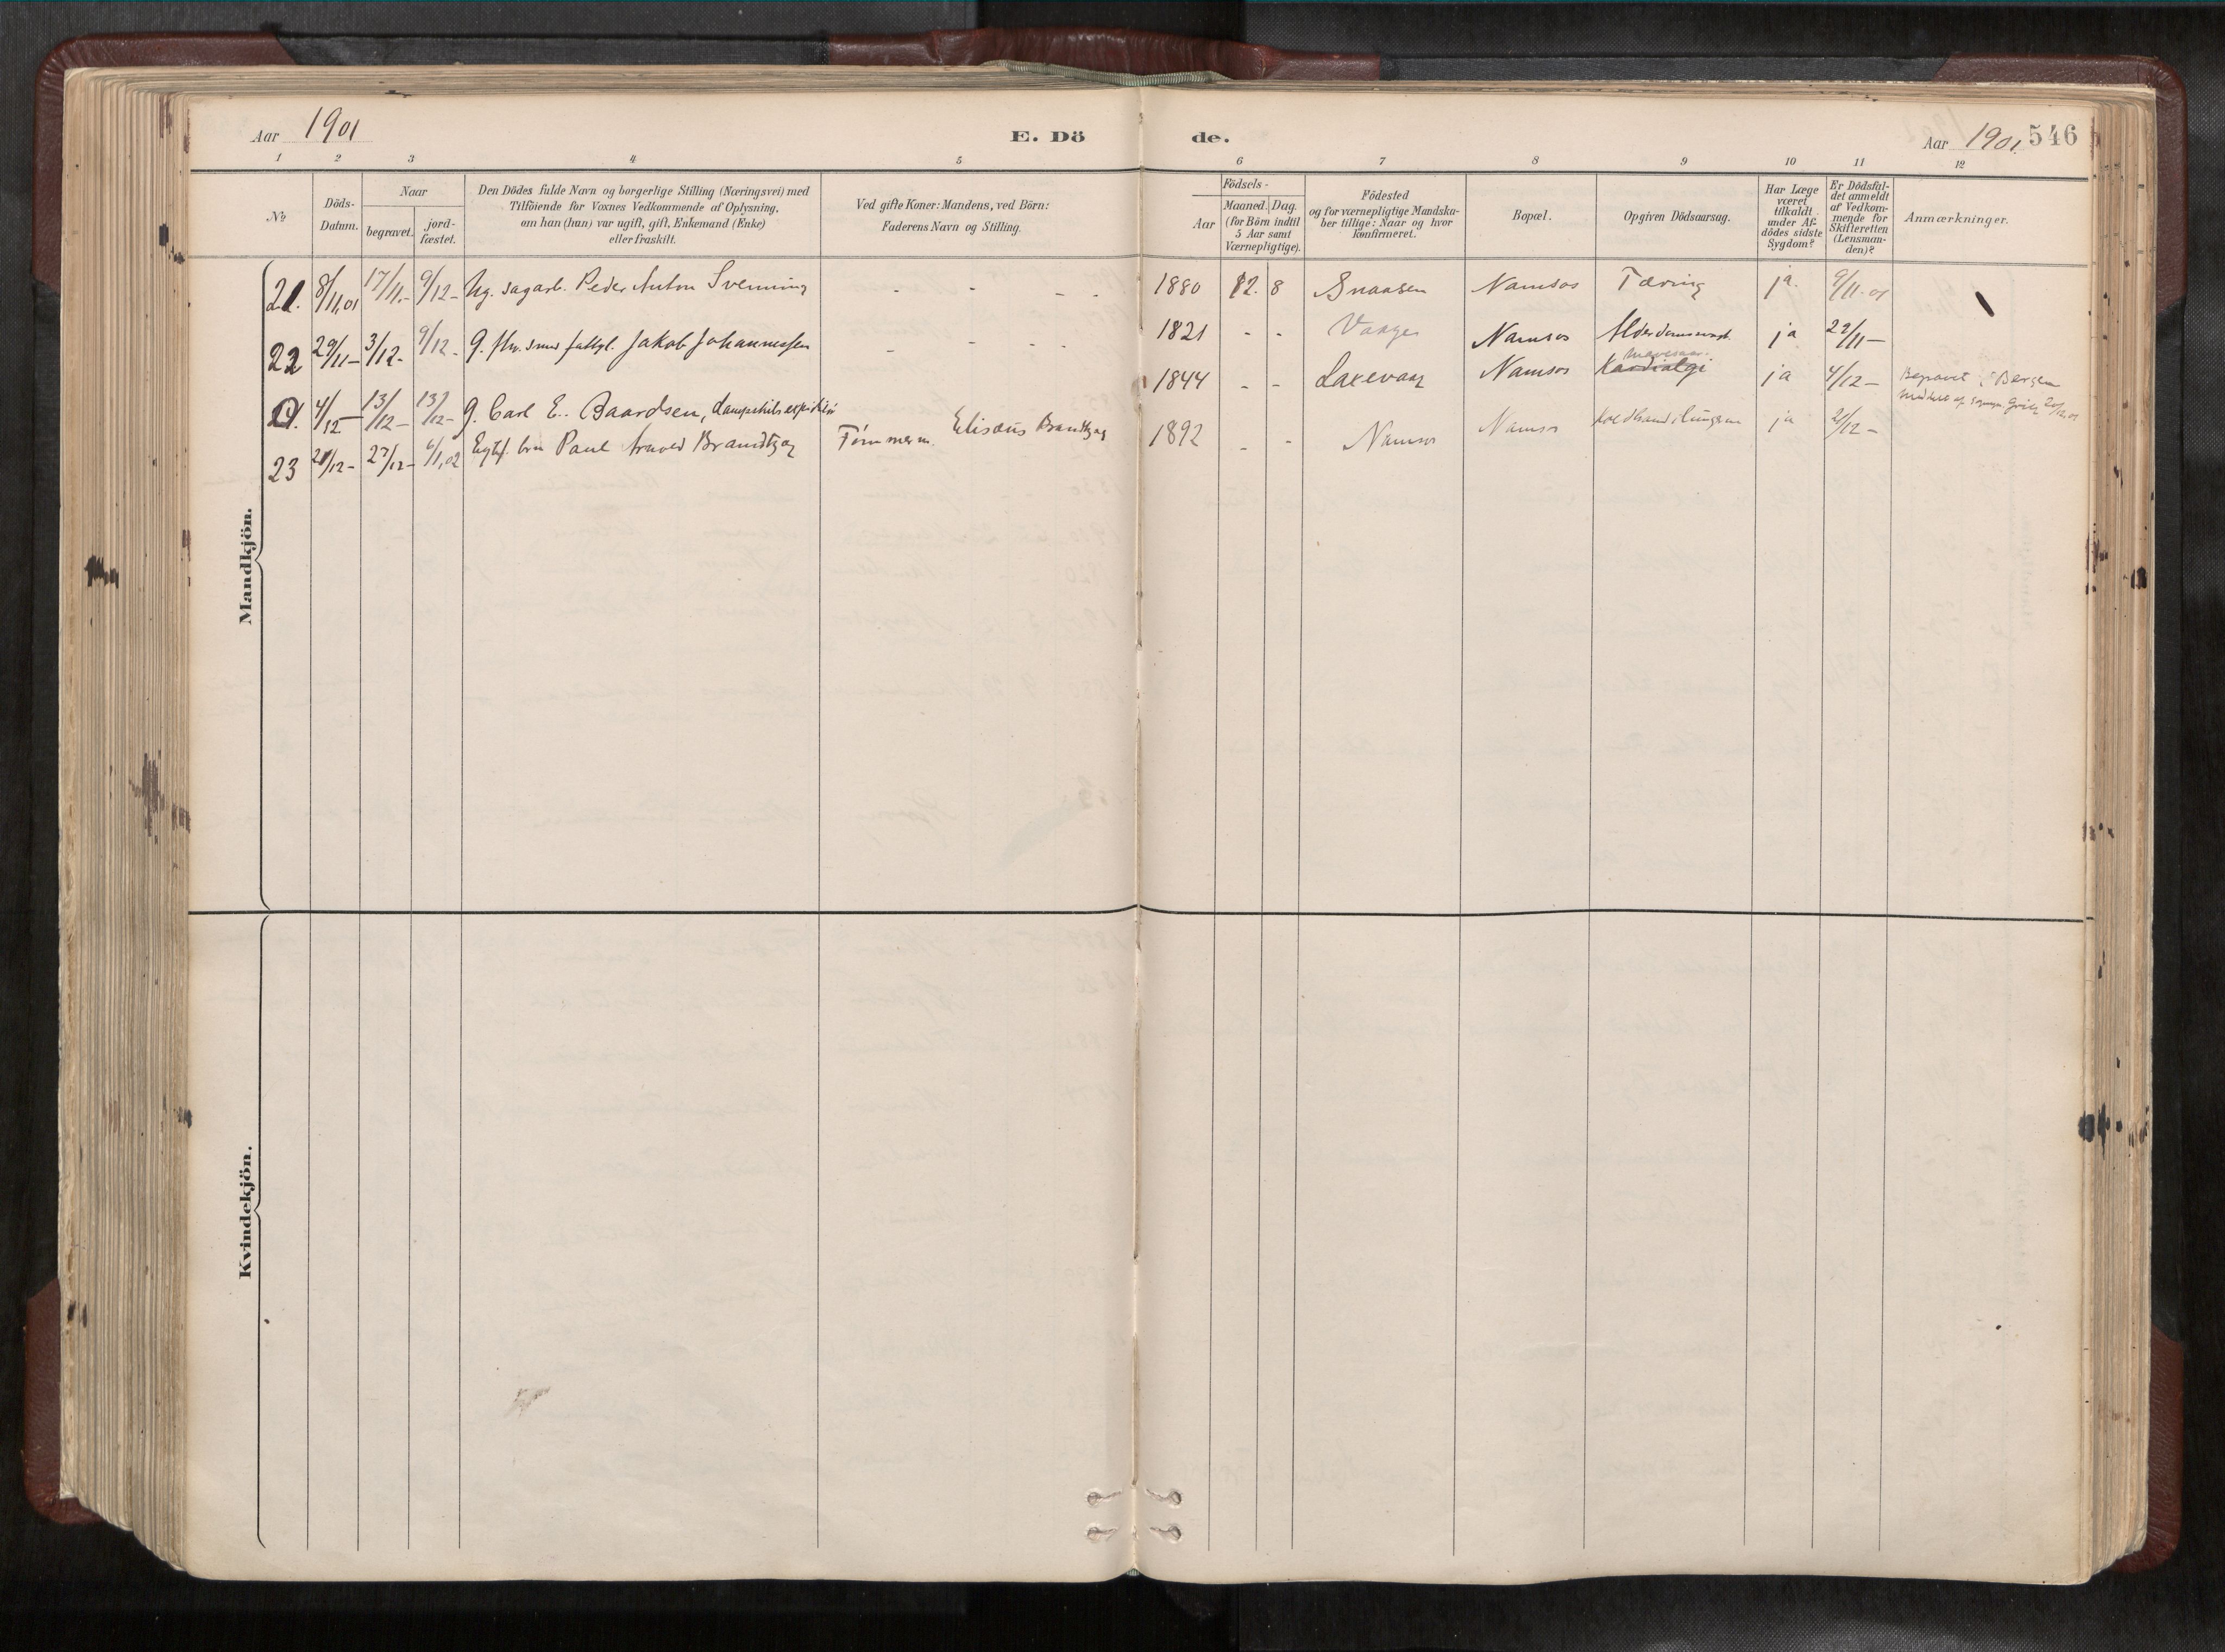 Aar 1901
E. Dö
de.
Aar 1901. 546
1 2 3 4 5 6 7 8 9 10 11 12
№
Döds-
Datum.
Naar
begravet.
jord-
fæstet.
Den Dödes fulde Navn og borgerlige Stilling (Næringsvei) med
Tilföiende for Voxnes Vedkommende af Oplysning,
om han (hun) var ugift, gift, Enkemand (Enke)
eller fraskilt.
Ved gifte Koner: Mandens, ved Börn:
Faderens Navn og Stilling.
Födsels-
Aar
Maaned. Dag.
(for Börn indtil
5 Aar samt
Værnepligtige).
Födested
og for værnepligtige Mandska-
ber tillige: Naar og hvor
konfirmeret.
Bopæl.
Opgiven Dödsaarsag.
Har Læge
været
tilkaldt
under Af-
dödes sidste
Sygdom?
Er Dödsfal-
det anmeldt
af Vedkom-
mende for
Skifteretten
(Lensman-
den)?
Anmærkninger.
Mandkjön.
21. 8/11,01 17/11.- 9/12- Ug. sagarb. Peder Anton Svenning - - - - 1880 12. 8 Snaasen Namsos Tæring ja. 9/11.01
22 29/11- 3/12- 9/12- G. fattgl. Jakob Johannessen - - - - 1821 - - Namsos ja 29/11-
4/12- 13/12- 13/12- G. Carl E. Baardsen, dampskibsexpeditör 1844 - - Laxevaag Namsos Kardialgi ja 4/12- Begravet i Bergen
23 21/12- 27/12- 6/1,02 Paul Arnold Brandtzæg Tömmerm. Elisæus Brandtzæg 1892 - - Namsos Namsos ja 21/12-
Kvindekjön.